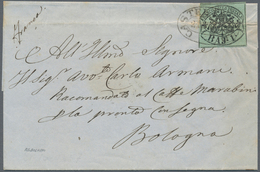 Franca
CAST
BAJ
All'Illmo Signore
Il Sigr Avoto Carlo Armani
Racomandata al Caffe Marabini
pla pronta Consegna
Bologna